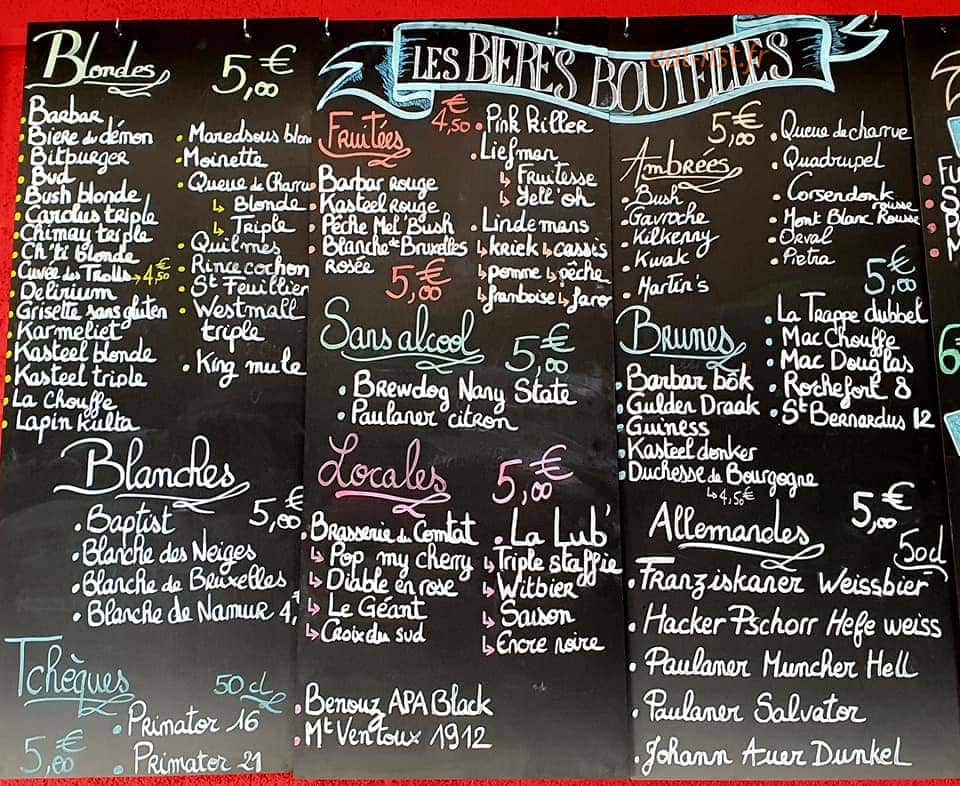 LES BIERES BOUTEILLES
eat-list.fr
Blondes
5,00 €
Barbar
Bière du démon
Bitburger
Bud
Bush blonde
Carolus triple
Chimay triple
Ch'ti blonde
Cuvée des Trolls → 4,50
Delirium
Griselle sans gluten
Karmeliet
Kasteel blonde
Kasteel triple
La Chouffe
Lapin kulta
Maredsous blon
Moinette
Queue de Charru
Blonde
Triple
Quilmes
Rince cochon
St Feuillien
Westmall
triple
King mule
Blanches
5,00 €
Baptist
Blanche des Neiges
Blanche de Bruxelles
Blanche de Namur 4,
Tchèques
50 cl
5,00 €
Primator 16
Primator 21
Fruitées
4,50 €
Barbar Rouge
Kasteel Rouge
Pêche Mel'Bush
Blanche de Bruxelles
Rosée
5,00 €
Pink Killer
Liefman
Fruitesse
Yell'oh
Lindemans
kriek cassis
pomme pêche
framboise faro
Sans alcool
5,00 €
Brewdog Nany State
Paulaner citron
Locales
5,00 €
Brasserie du Comtat
Pop my cherry
Diable en rose
Le Géant
Croix du sud
La Lub'
Triple staffie
Witbier
Saison
Encre noire
Benouz APA Black
Mt Ventoux 1912
Ambrées
5,00 €
Bush
Gavroche
Kilkenny
Kwak
Martin's
Queue de charrue
Quadrupel
Corsendonk
rousse
Mont Blanc Rousse
Orval
Pietra
Brunes
5,00 €
Barbar bök
Gulden Draak
Guiness
Kasteel donker
Duchesse de Bourgogne
4,50 €
La Trappe dubbel
Mac Chouffe
Mac Douglas
Rochefort 8
St Bernardus 12
Allemandes
5,00 €
50 cl
Franziskaner Weissbier
Hacker Pschorr Hefe weiss
Paulaner Muncher Hell
Paulaner Salvator
Johann Auer Dunkel
Fu
S
P
M
6€